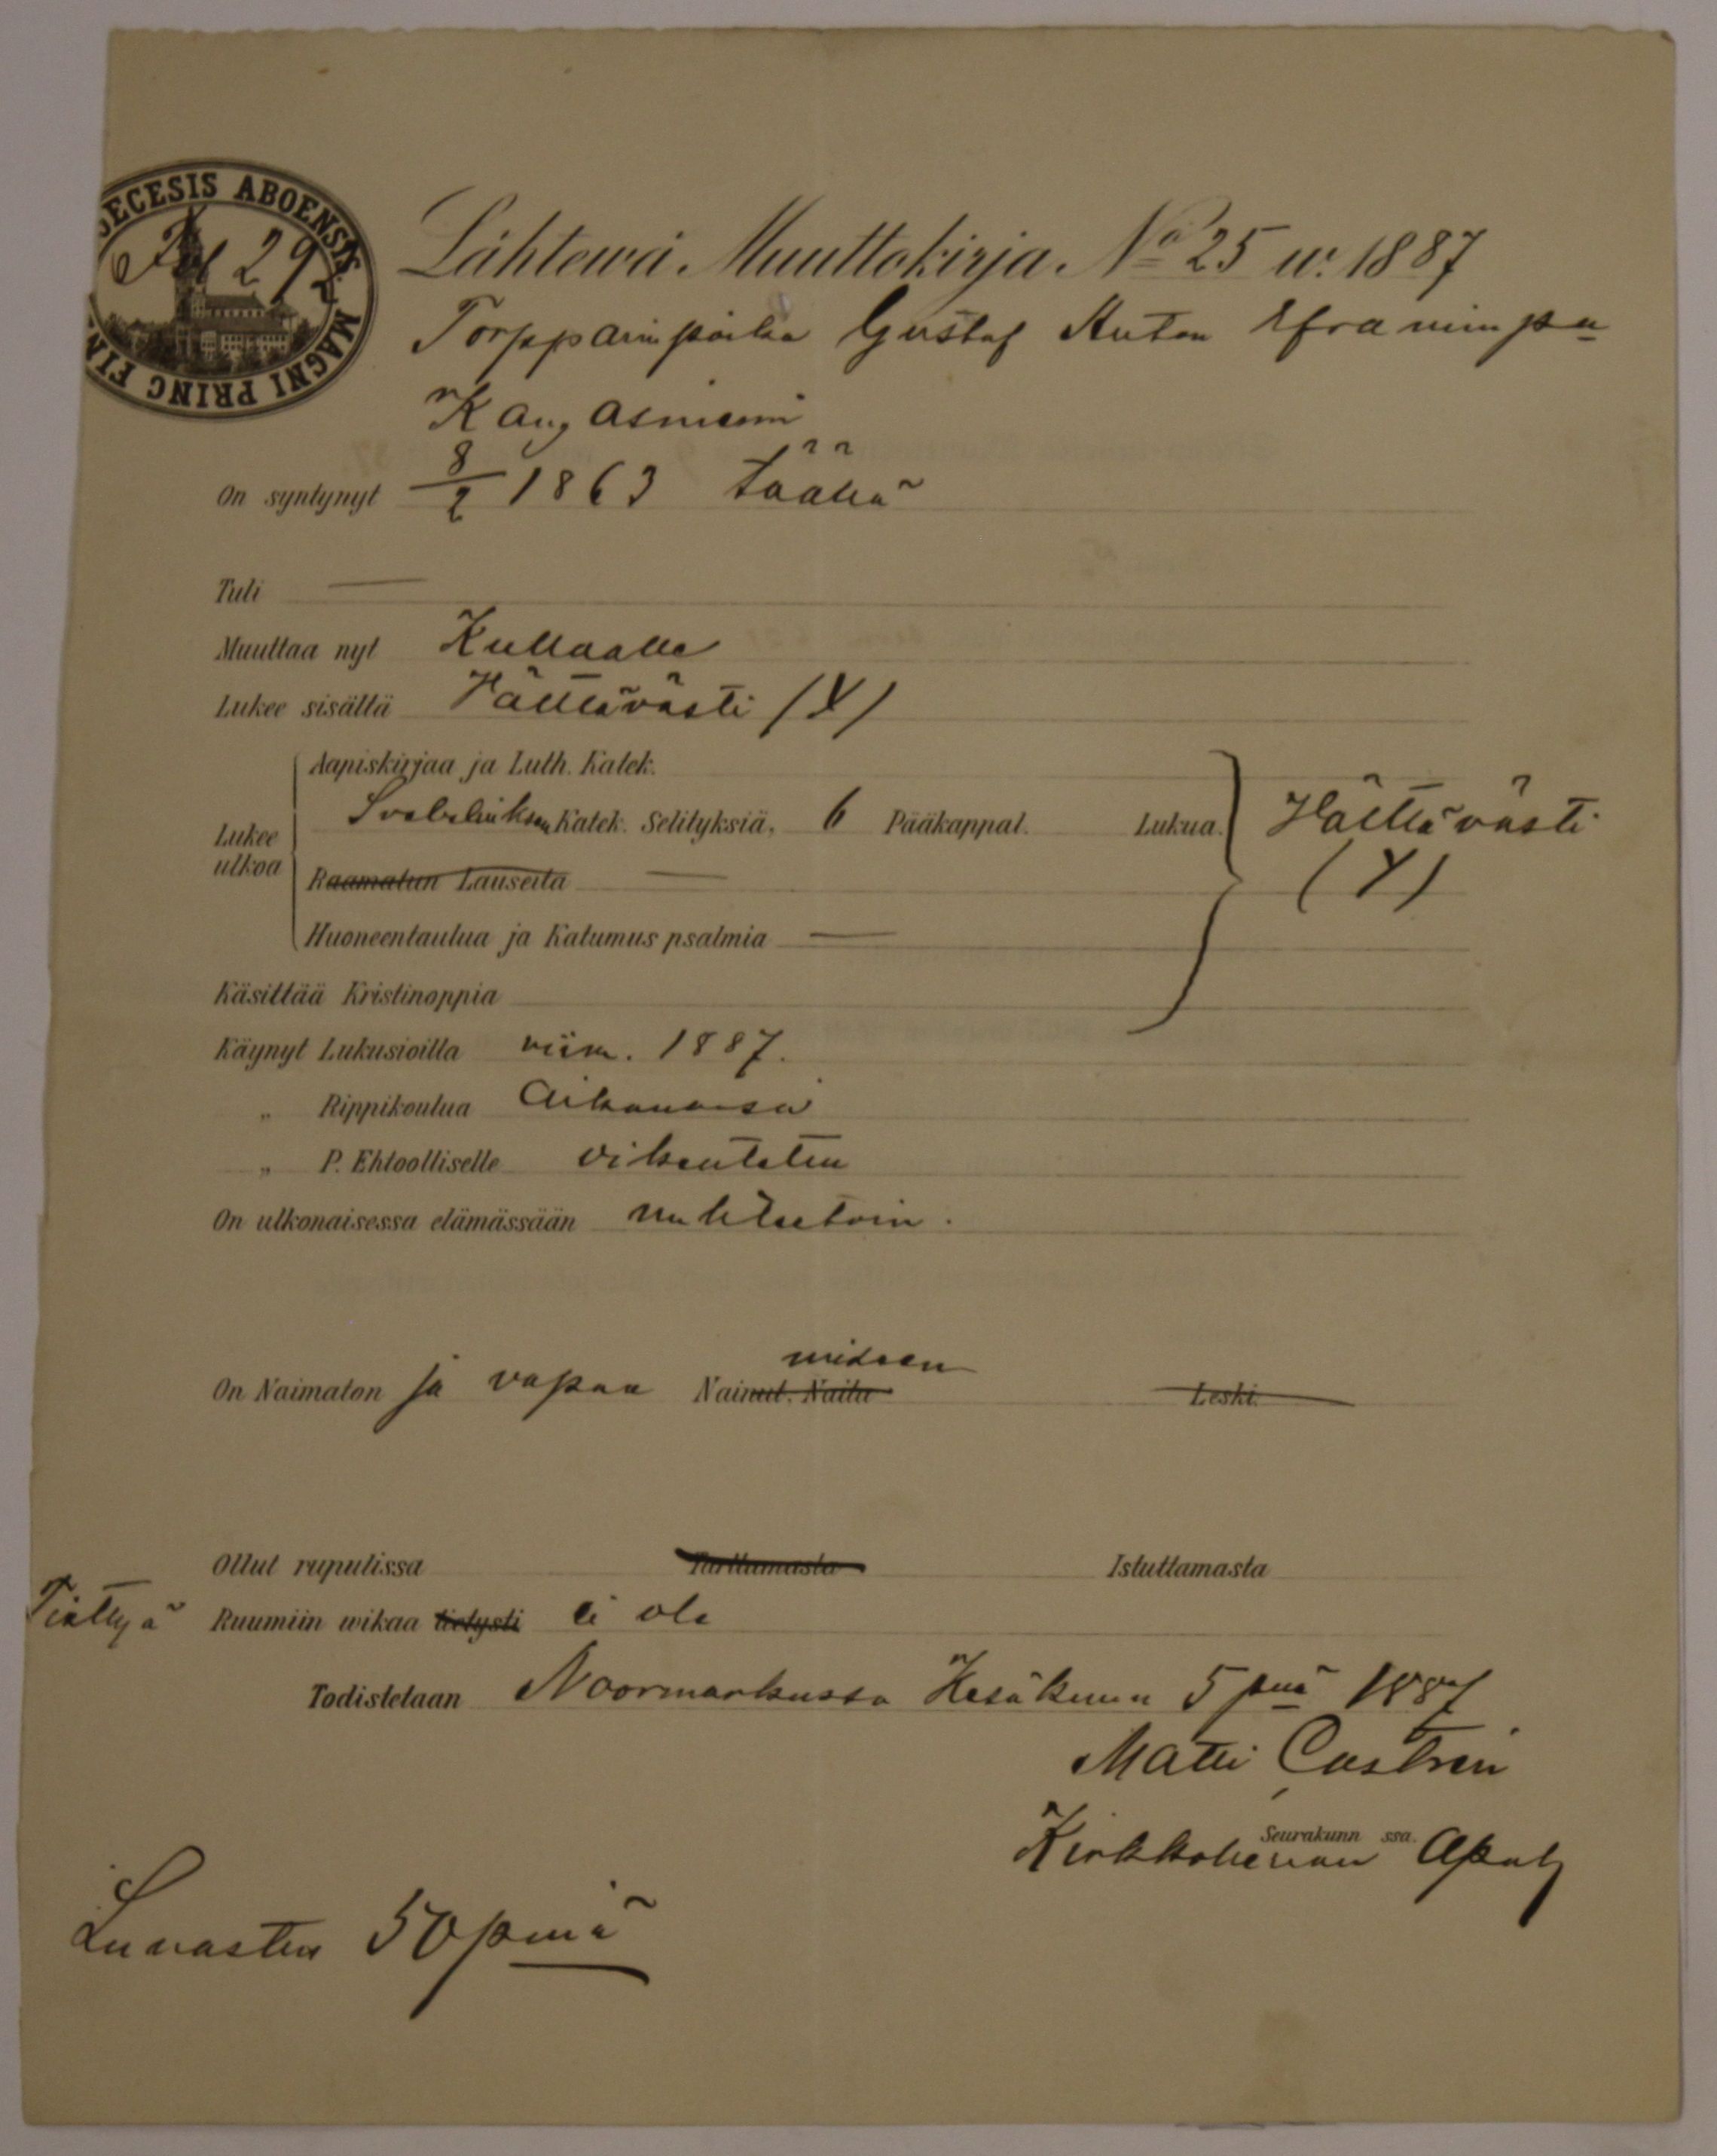 DECESIS ABOENSIS MAGNI PRINC FIN
292
Lähtewä Muuttokirja No 25 w. 1887
Torpparinpoika Gustaf Anton Efraiminpa
Kangasniemi
On syntynyt 8/2 1863 täällä
Tuli —
Muuttaa nyt Kullaalle
Lukee sisältä Hälttävästi (Y)
Lukee ulkoa
Aapiskirjaa ja Luth. Katek.
Svebeliuksen Katek. Selityksiä, 6 Pääkappal. Lukua. Hälttävästi
Raamatun Lauseita — (Y)
Huoneentaulua ja Katumus psalmia —
Käsittää Kristinoppia
Käynyt Lukusioilla viim. 1887.
„ Rippikoulua Aikanansa
„ P. Ehtoolliselle oikeuteten
On ulkonaisessa elämässään nuhteetoin.
On Naimaton ja vapaa Nainut. Naitu miksen Leski.
Ollut rupulissa Tarttumasta Istuttamasta
Tiettyä Ruumiin wikaa tietysti ei ole
Todistetaan Noormarkussa Kesäkuun 5 pnä 1887
Matti Castrén
Seurakunn ssa.
Kirkkoherran Apul
Lunastus 50 pniä